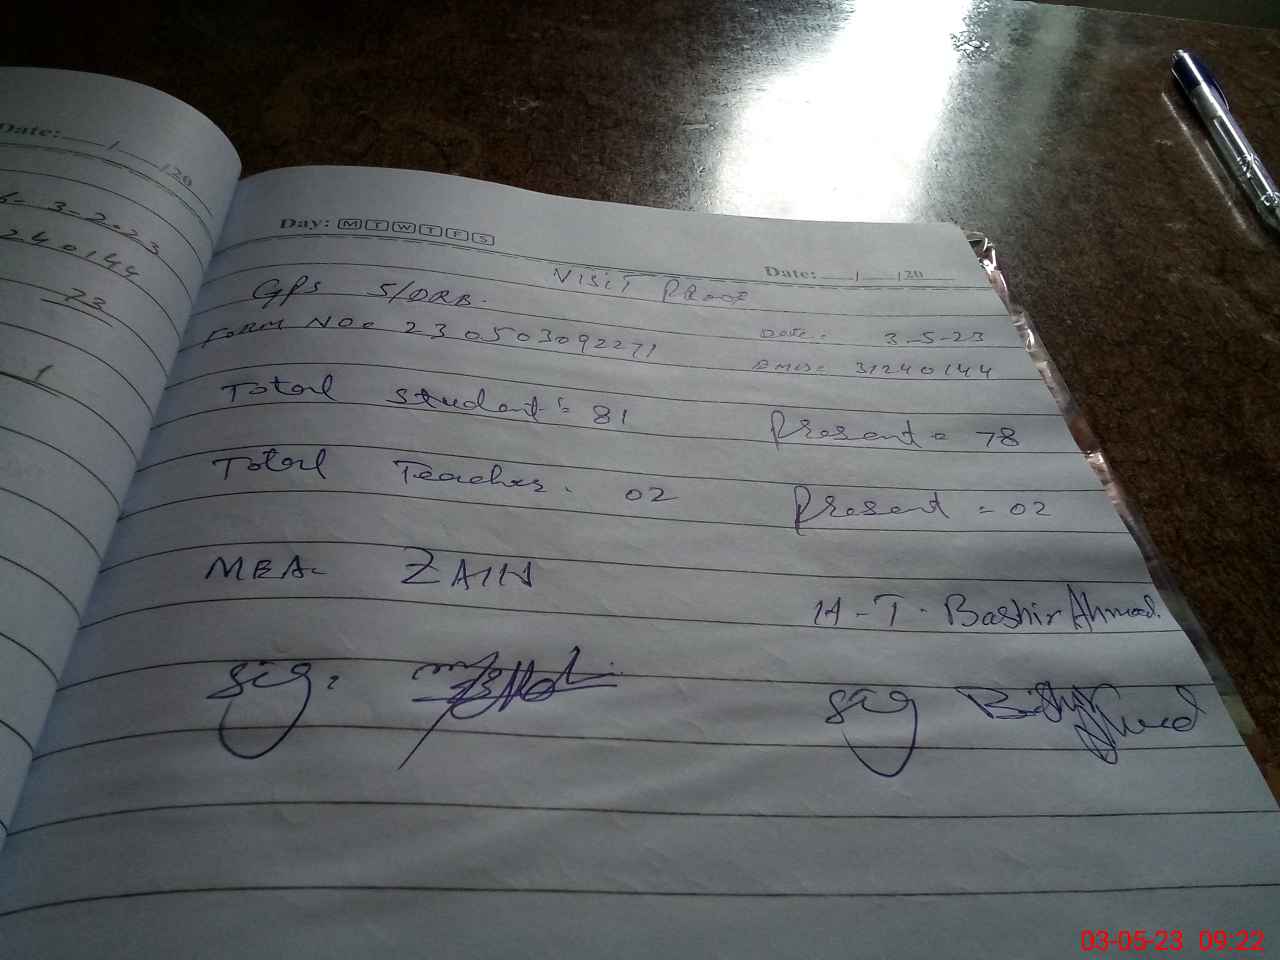 Date: / /20
6-3-2023
240144
73
1
Day: M T W T F S
Date: / /20
VISIT PROOF
GPS S/ORB.
Date: 3-5-23
FORM NO: 230503092271
EMIS: 31240144
Total Student: 81 Present = 78
Total Teacher. 02 Present = 02
MEA- ZAIN
H-T. Bashir Ahmad.
Sig:
Sig Bashir Ahmed
03-05-23 09:22